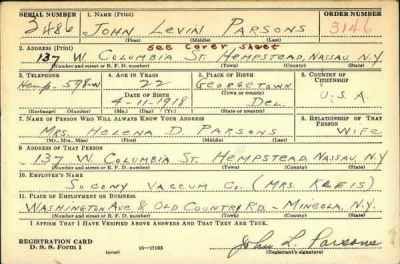 SERIAL NUMBER 1. NAME (Print) ORDER NUMBER
2486 JOHN LEVIN PARSONS 3146
(First) (Middle) (Last)
2. ADDRESS (Print) see cover sheet
137 W. COLUMBIA ST. HEMPSTEAD, NASSAU, N.Y.
(Number and street or R. F. D. number) (Town) (County) (State)
3. TELEPHONE 4. AGE IN YEARS 5. PLACE OF BIRTH 6. COUNTRY OF CITIZENSHIP
Hemp. 598-W 22 GEORGETOWN
DATE OF BIRTH (Town or county)
4-11-1918 DEL. U.S.A
(Exchange) (Number) (Mo.) (Day) (Yr.) (State or country)
7. NAME OF PERSON WHO WILL ALWAYS KNOW YOUR ADDRESS 8. RELATIONSHIP OF THAT PERSON
MRS. HELENA D. PARSONS WIFE
(Mr., Mrs., Miss) (First) (Middle) (Last)
9. ADDRESS OF THAT PERSON
137 W. COLUMBIA ST. HEMPSTEAD, NASSAU, N.Y
(Number and street or R. F. D. number) (Town) (County) (State)
10. EMPLOYER'S NAME
SOCONY VACCUM CO. (MRS. KLEIS)
11. PLACE OF EMPLOYMENT OR BUSINESS
WASHINGTON AVE & OLD COUNTRY RD. - MINEOLA, N.Y.
(Number and street or R. F. D. number) (Town) (County) (State)
I AFFIRM THAT I HAVE VERIFIED ABOVE ANSWERS AND THAT THEY ARE TRUE.
REGISTRATION CARD
D. S. S. Form 1 (over) 16-17105 John L. Parsons
(Registrant's signature)